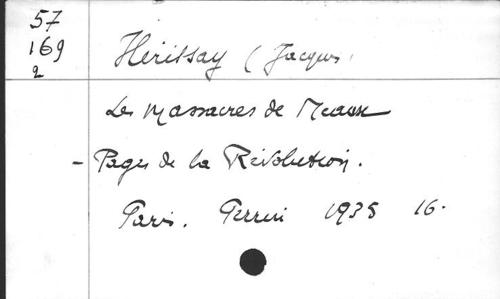 57
169
2
Hérissay (Jacques)
Les Massacres de Meaux
- Pages de la Révolution.
Paris. Perrin 1935 16.